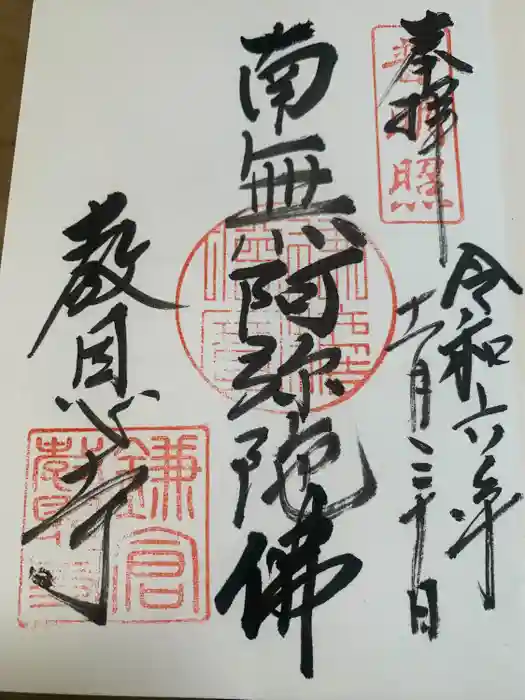 奉拝
普明照
令和六年
十二月二十日
南無阿弥陀佛
教恩寺
鎌倉
教恩寺